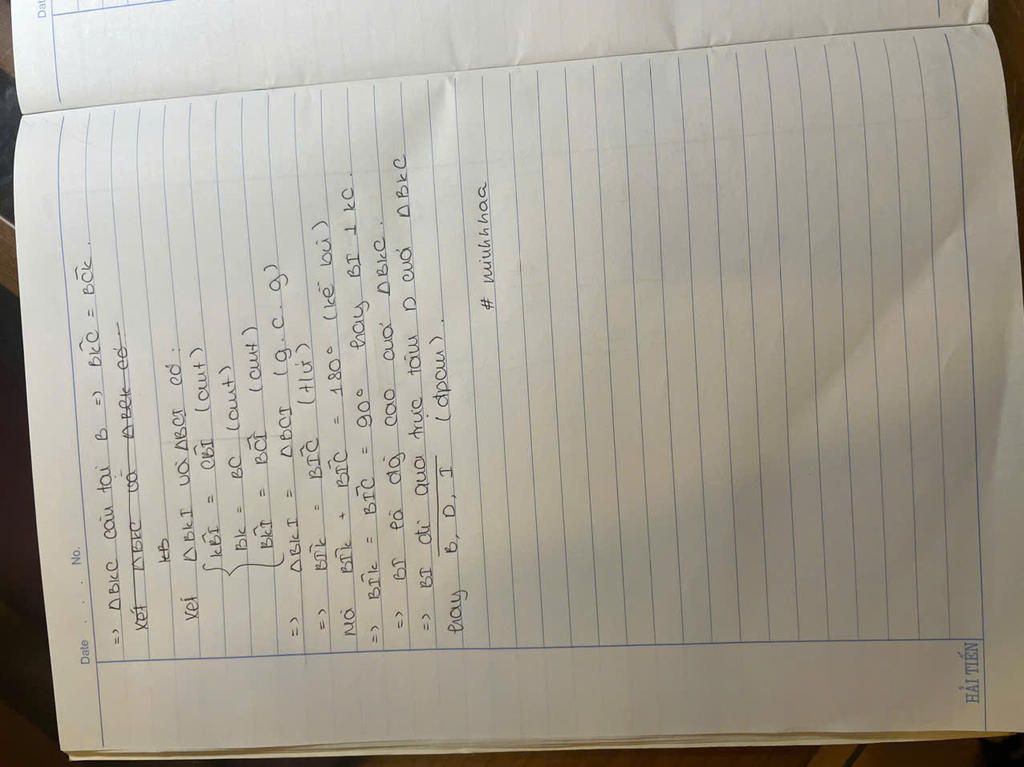 Date . . . No.
=> ΔBKC cân tại B => BK̂C = BĈK.
Xét ΔBKC và ΔBCK có
Xét ΔBKI và ΔBCI có:
KB̂I = CB̂I (cmt)
BK = BC (cmt)
BK̂I = BĈI (cmt)
=> ΔBKI = ΔBCI (g.c.g)
=> BÎK = BÎC (t/ứ)
Mà BÎK + BÎC = 180° (kề bù)
=> BÎK = BÎC = 90° hay BI ⊥ KC.
=> BI là đg cao của ΔBKC.
=> BI đi qua trực tâm D của ΔBKC
hay B, D, I (đpcm).
# minhhhaa
HẢI TIẾN